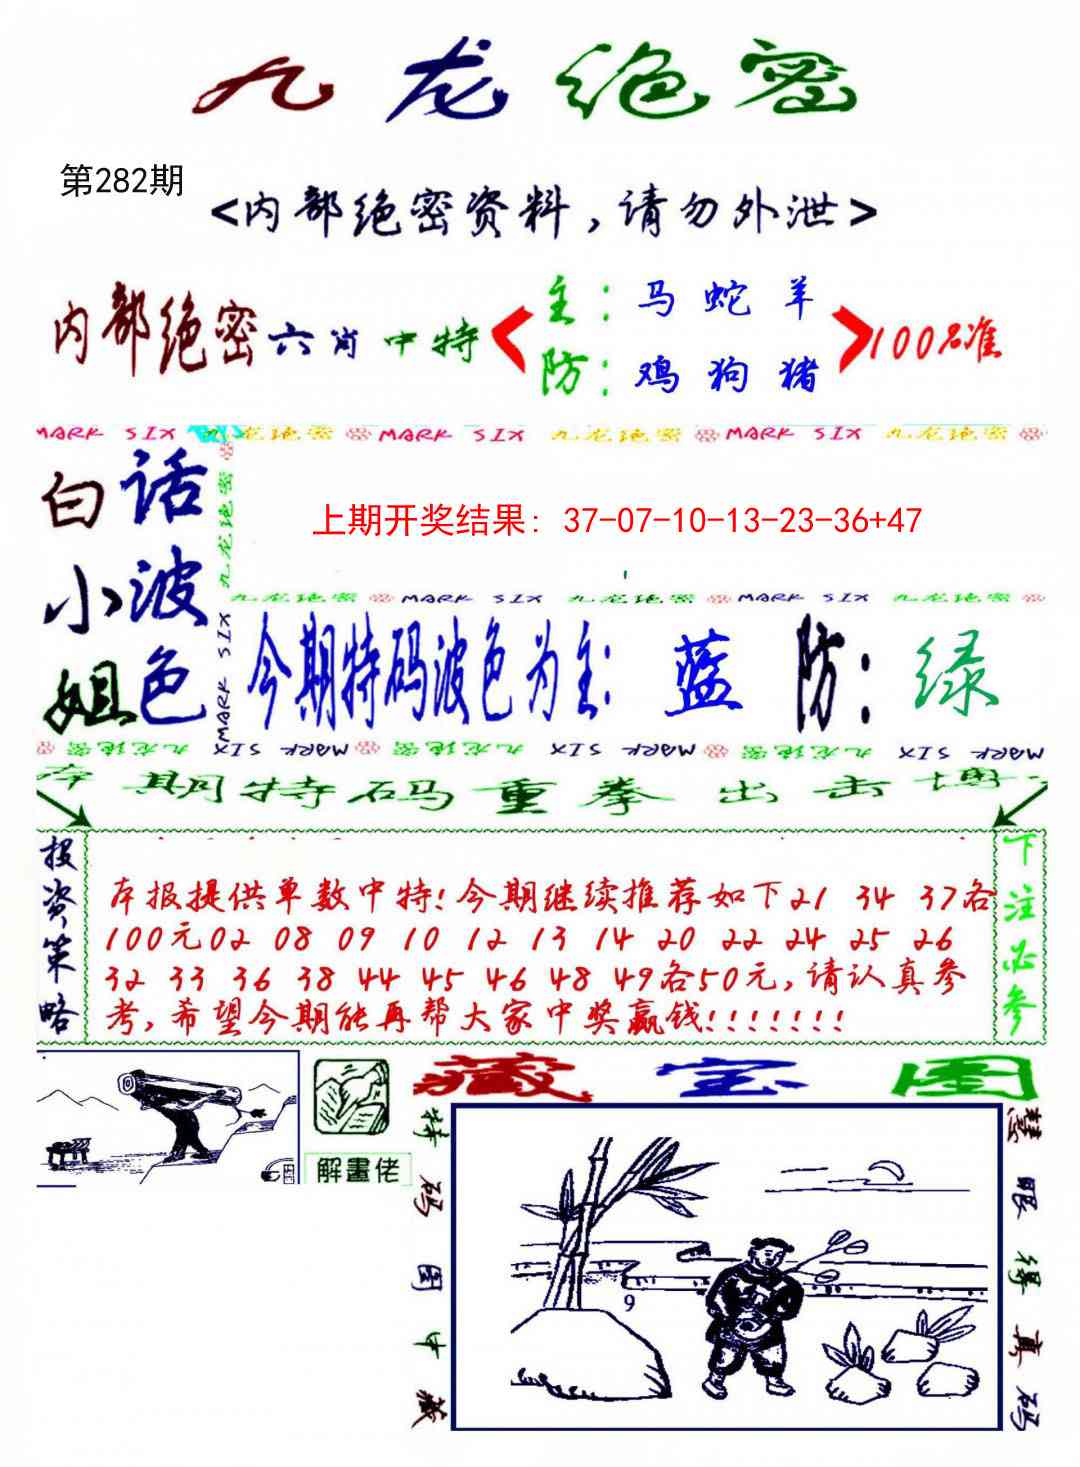 九龙绝密
第282期
<内部绝密资料，请勿外泄>
内部绝密六肖中特
主：马 蛇 羊
防：鸡 狗 猪
100%准
MARK SIX 九龙绝密 MARK SIX 九龙绝密 MARK SIX 九龙绝密
白话小波姐色
九龙绝密
MARK SIX
上期开奖结果: 37-07-10-13-23-36+47
九龙绝密 MARK SIX 九龙绝密 MARK SIX 九龙绝密
今期特码波色为主：蓝 防：绿
九龙绝密 MARK SIX 九龙绝密 MARK SIX 九龙绝密 MARK SIX
本期特码重拳出击博
投资策略
本报提供单数中特!今期继续推荐如下21 34 37各
100元02 08 09 10 12 13 14 20 22 24 25 26
32 33 36 38 44 45 46 48 49各50元,请认真参
考,希望今期能再帮大家中奖赢钱!!!!!!!
下注必参
解畫佬
藏宝图
特码图中藏
9
慧眼得真码